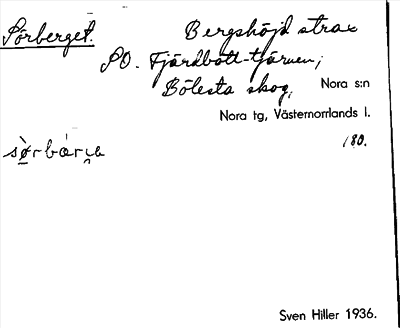 Sörberget. Bergshöjd strax
SO. Fjärdbott-tjärnen;
Bölesta skog, Nora s:n
Nora tg, Västernorrlands l.
180.
Sven Hiller 1936.